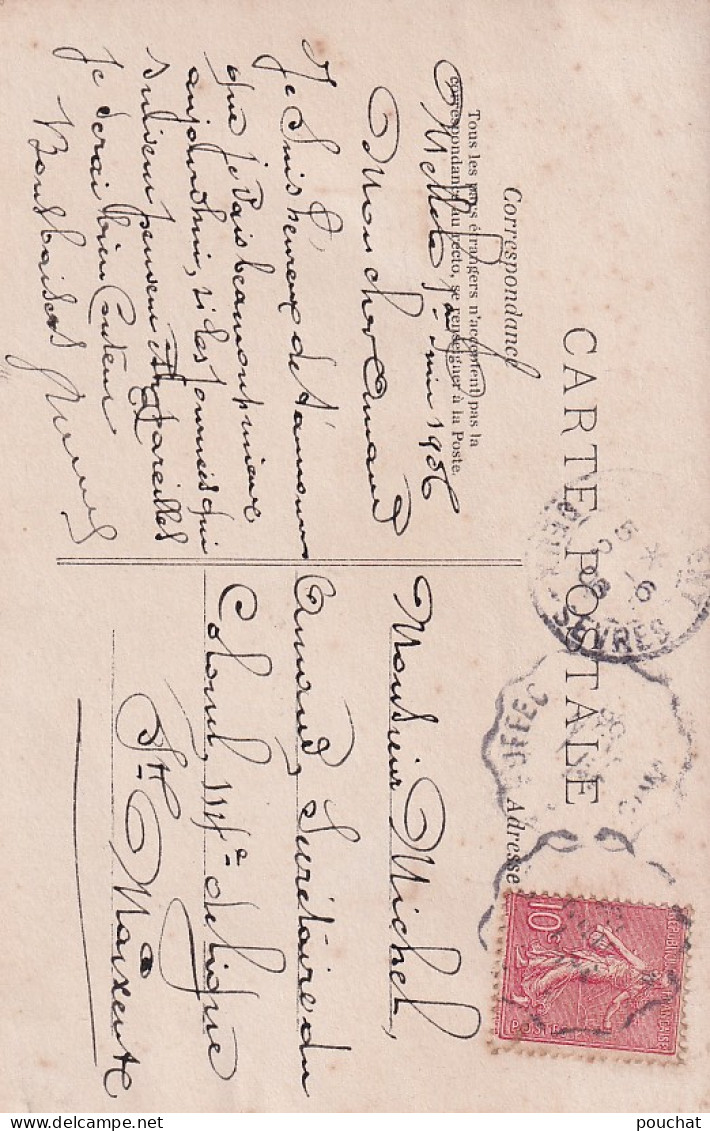 CARTE POSTALE
Correspondance
Tous les pays étrangers n'acceptent pas la
correspondance au recto, se renseigner à la Poste.
Adresse
Melle juin 1906
Mon cher Armand
Je suis heureux de t'annoncer
que je vais beaucoup mieux
aujourd'hui, si les journées qui
suivent peuvent pareilles
Je serai bien
Bons baisers
Monsieur Michel,
Armand, Secrétaire du
Colonel, Inf. de ligne
St Maixent
SEVRES
10c
POSTES
pouchat